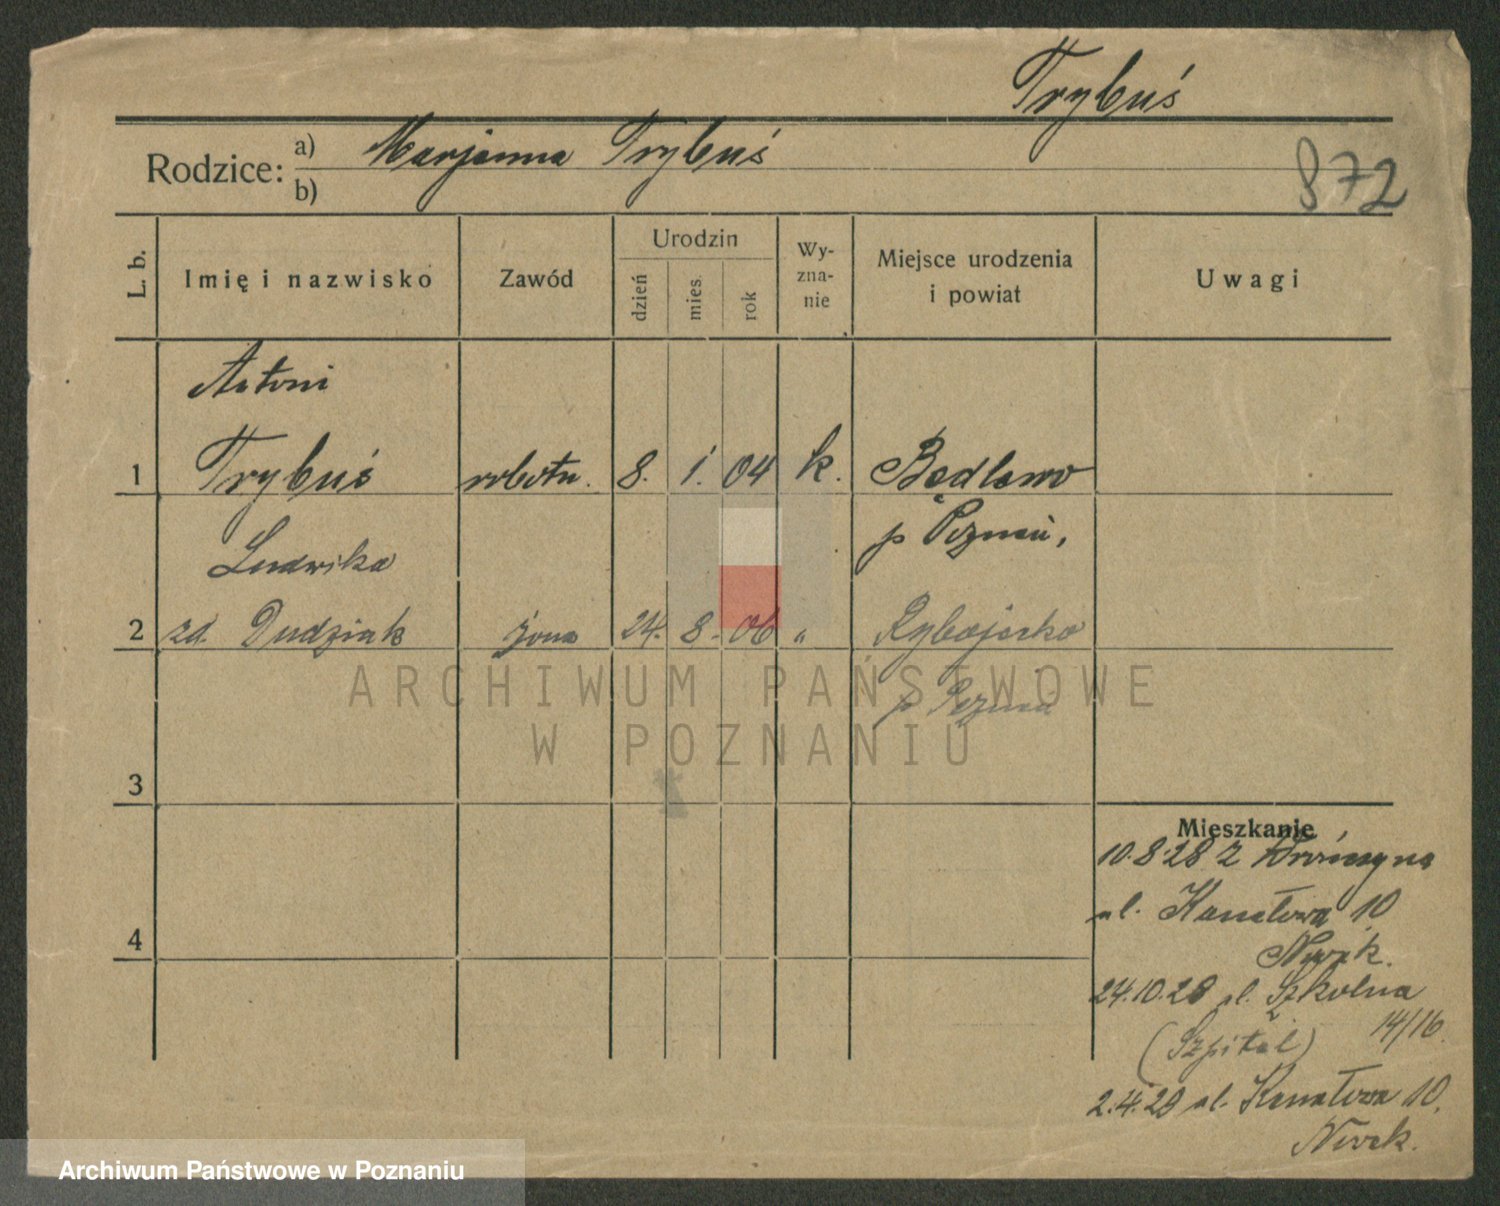 Trybuś
Rodzice: a) Marjanna Trybuś
b)
872
L. b.
Imię i nazwisko
Zawód
Urodzin
dzień
mies.
rok
Wy-
zna-
nie
Miejsce urodzenia
i powiat
Uwagi
Antoni
1 Trybuś robotn. 8. 1. 04 k. Będlewo
p Poznań,
Ludwika
2 zd. Dudziak żona 24. 8. 06 "
p Poznań
ARCHIWUM PAŃSTWOWE
W POZNANIU
3
4
Mieszkanie
10.8.28 z
ul. Kanałowa 10
Nowak.
24.10.28 ul. Szkolna
14/16.
(Szpital)
2.4.29 ul. Kanałowa 10.
Nowak.
Archiwum Państwowe w Poznaniu